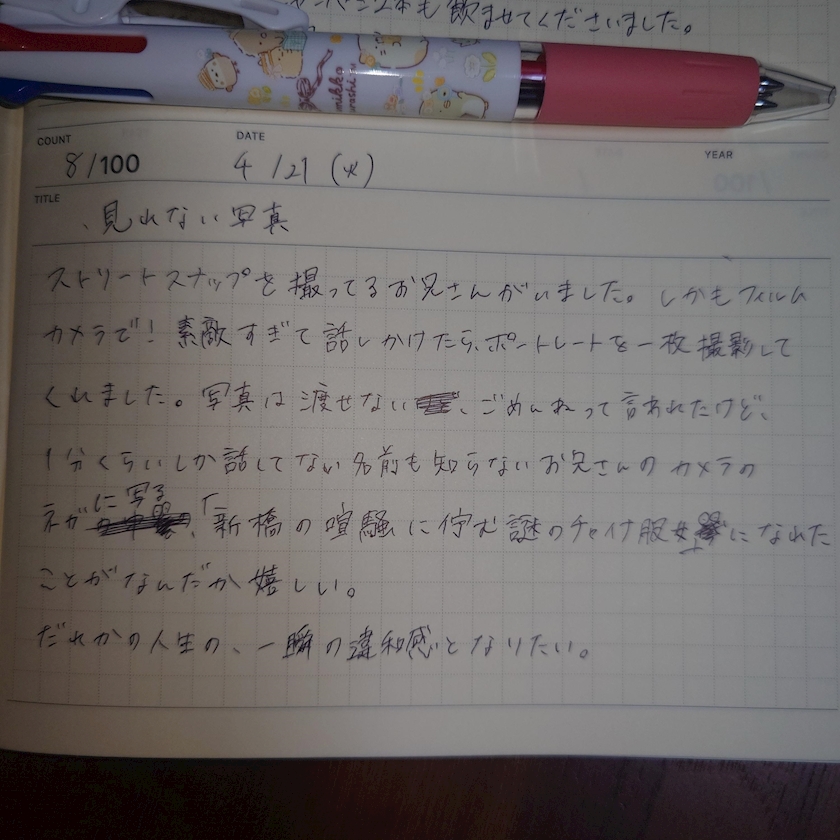 も飲ませてくださいました。
COUNT DATE YEAR
8/100 4/21(火)
TITLE
見れない写真
ストリートスナップを撮ってるお兄さんがいました。しかもフィルム
カメラで!素敵すぎて話しかけたら、ポートレートを一枚撮影して
くれました。写真は渡せない、ごめんねって言われたけど、
1分くらいしか話してない名前も知らないお兄さんのカメラの
ネガに写る、「新橋の喧騒に佇む謎のチャイナ服女」になれた
ことがなんだか嬉しい。
だれかの人生の、一瞬の違和感となりたい。